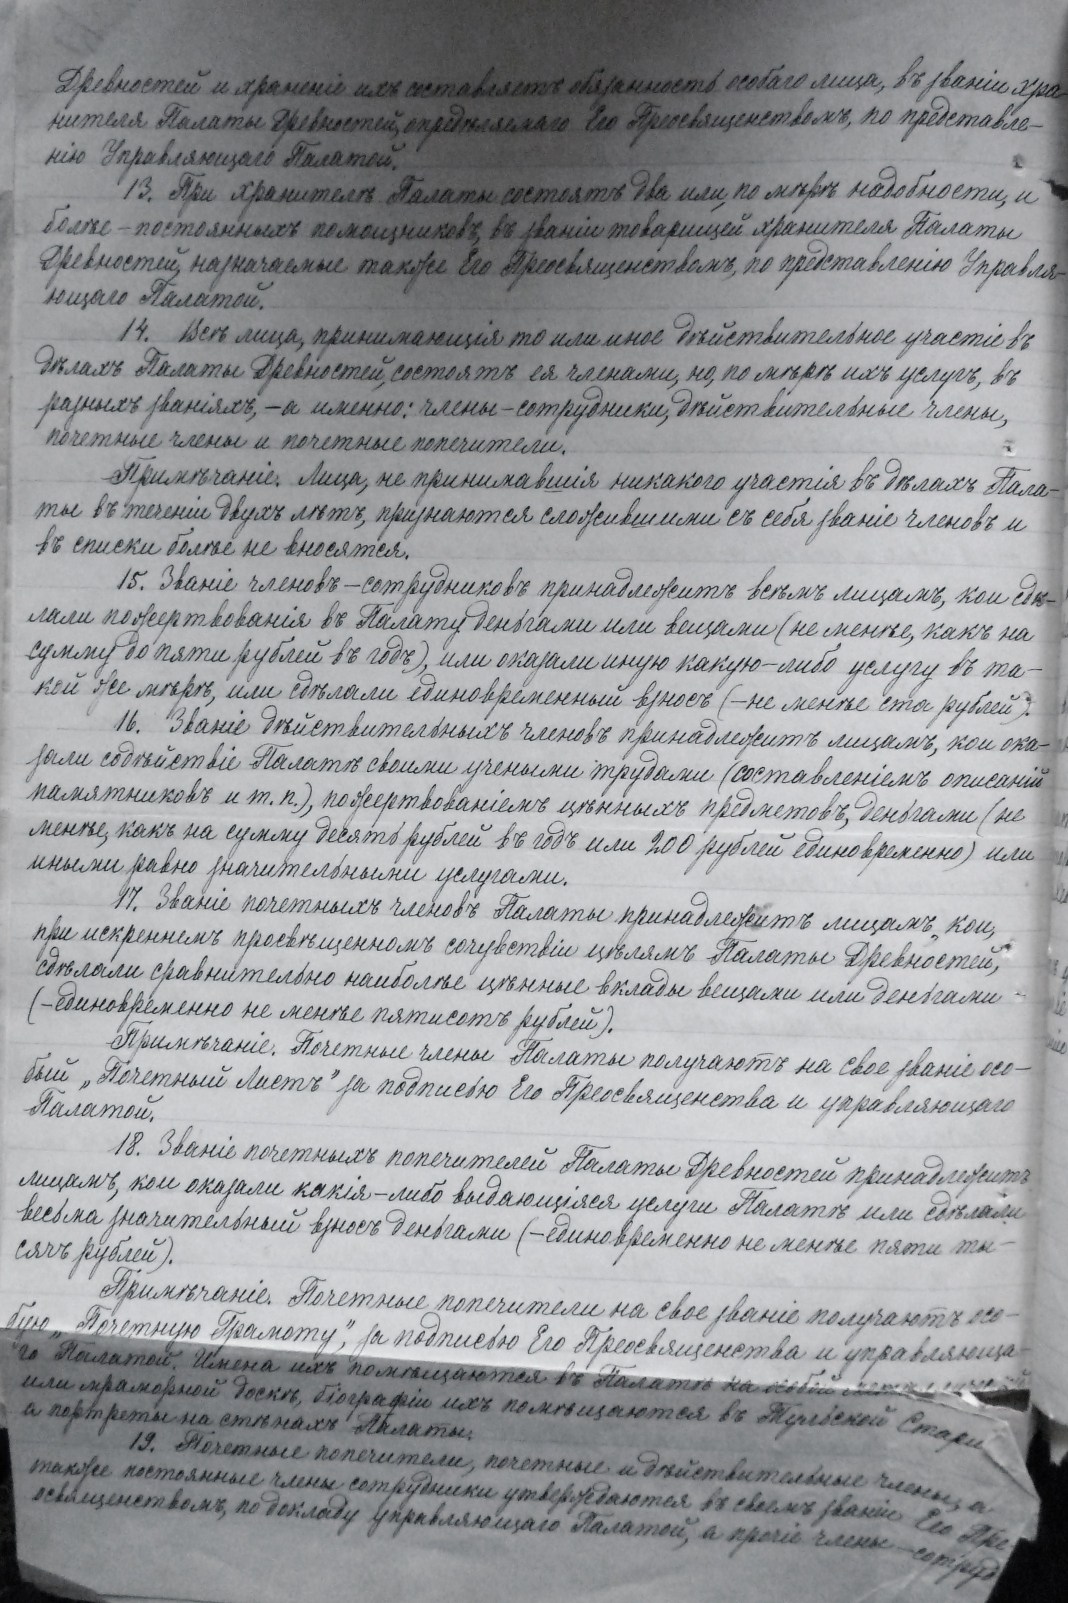 Древностей и храненіе ихъ составляетъ обязанность особаго лица, въ званіи хра-
нителя Палаты Древностей, опредѣляемаго Его Преосвященствомъ, по представле-
нію Управляющаго Палатой.
13. При хранителѣ Палаты состоятъ два или, по мѣрѣ надобности, и
болѣе – постоянныхъ помощниковъ, въ званіи товарищей хранителя Палаты
Древностей, назначаемые также Его Преосвященствомъ, по представленію Управля-
ющаго Палатой.
14. Всѣ лица, принимающія то или иное дѣйствительное участіе въ
дѣлахъ Палаты Древностей, состоятъ ея членами, но, по мѣрѣ ихъ услугъ, въ
разныхъ званіяхъ, – а именно: члены-сотрудники, дѣйствительные члены,
почетные члены и почетные попечители.
Примѣчаніе. Лица, не принимавшія никакого участія въ дѣлахъ Пала-
ты въ теченіи двухъ лѣтъ, признаются сложившими съ себя званіе членовъ и
въ списки болѣе не вносятся.
15. Званіе членовъ – сотрудниковъ принадлежитъ всѣмъ лицамъ, кои сдѣ-
лали пожертвованія въ Палату деньгами или вещами (не менѣе, какъ на
сумму до пяти рублей въ годъ), или оказали иную какую-либо услугу въ та-
кой же мѣрѣ, или сдѣлали единовременный взносъ (– не менѣе ста рублей).
16. Званіе дѣйствительныхъ членовъ принадлежитъ лицамъ, кои ока-
зали содѣйствіе Палатѣ своими учеными трудами (составленіемъ описаній
памятниковъ и т. п.), пожертвованіемъ цѣнныхъ предметовъ, деньгами (не
менѣе, какъ на сумму десять рублей въ годъ или 200 рублей единовременно) или
иными равно значительными услугами.
17. Званіе почетныхъ членовъ Палаты принадлежитъ лицамъ, кои,
при искреннемъ просвѣщенномъ сочувствіи цѣлямъ Палаты Древностей,
сдѣлали сравнительно наиболѣе цѣнные вклады вещами или деньгами –
(– единовременно не менѣе пятисотъ рублей).
Примѣчаніе. Почетные члены Палаты получаютъ на свое званіе осо-
бый „Почетный Листъ" за подписью Его Преосвященства и управляющаго
Палатой.
18. Званіе почетныхъ попечителей Палаты Древностей принадлежитъ
лицамъ, кои оказали какія-либо выдающіяся услуги Палатѣ или сдѣлали
весьма значительный взносъ деньгами (– единовременно не менѣе пяти ты-
сячъ рублей).
Примѣчаніе. Почетные попечители на свое званіе получаютъ осо-
бую „Почетную Грамоту", за подписью Его Преосвященства и управляюща-
го Палатой. Имена ихъ помѣщаются въ Палатѣ на особой
или мраморной доскѣ, біографіи ихъ помѣщаются въ Тульской Стари
а портреты на стѣнахъ Палаты.
19. Почетные попечители, почетные и дѣйствительные члены, а
также постоянные члены сотрудники утверждаются въ своемъ званіи Его Пре
освященствомъ, по докладу управляющаго Палатой, а прочіе члены – сотруд